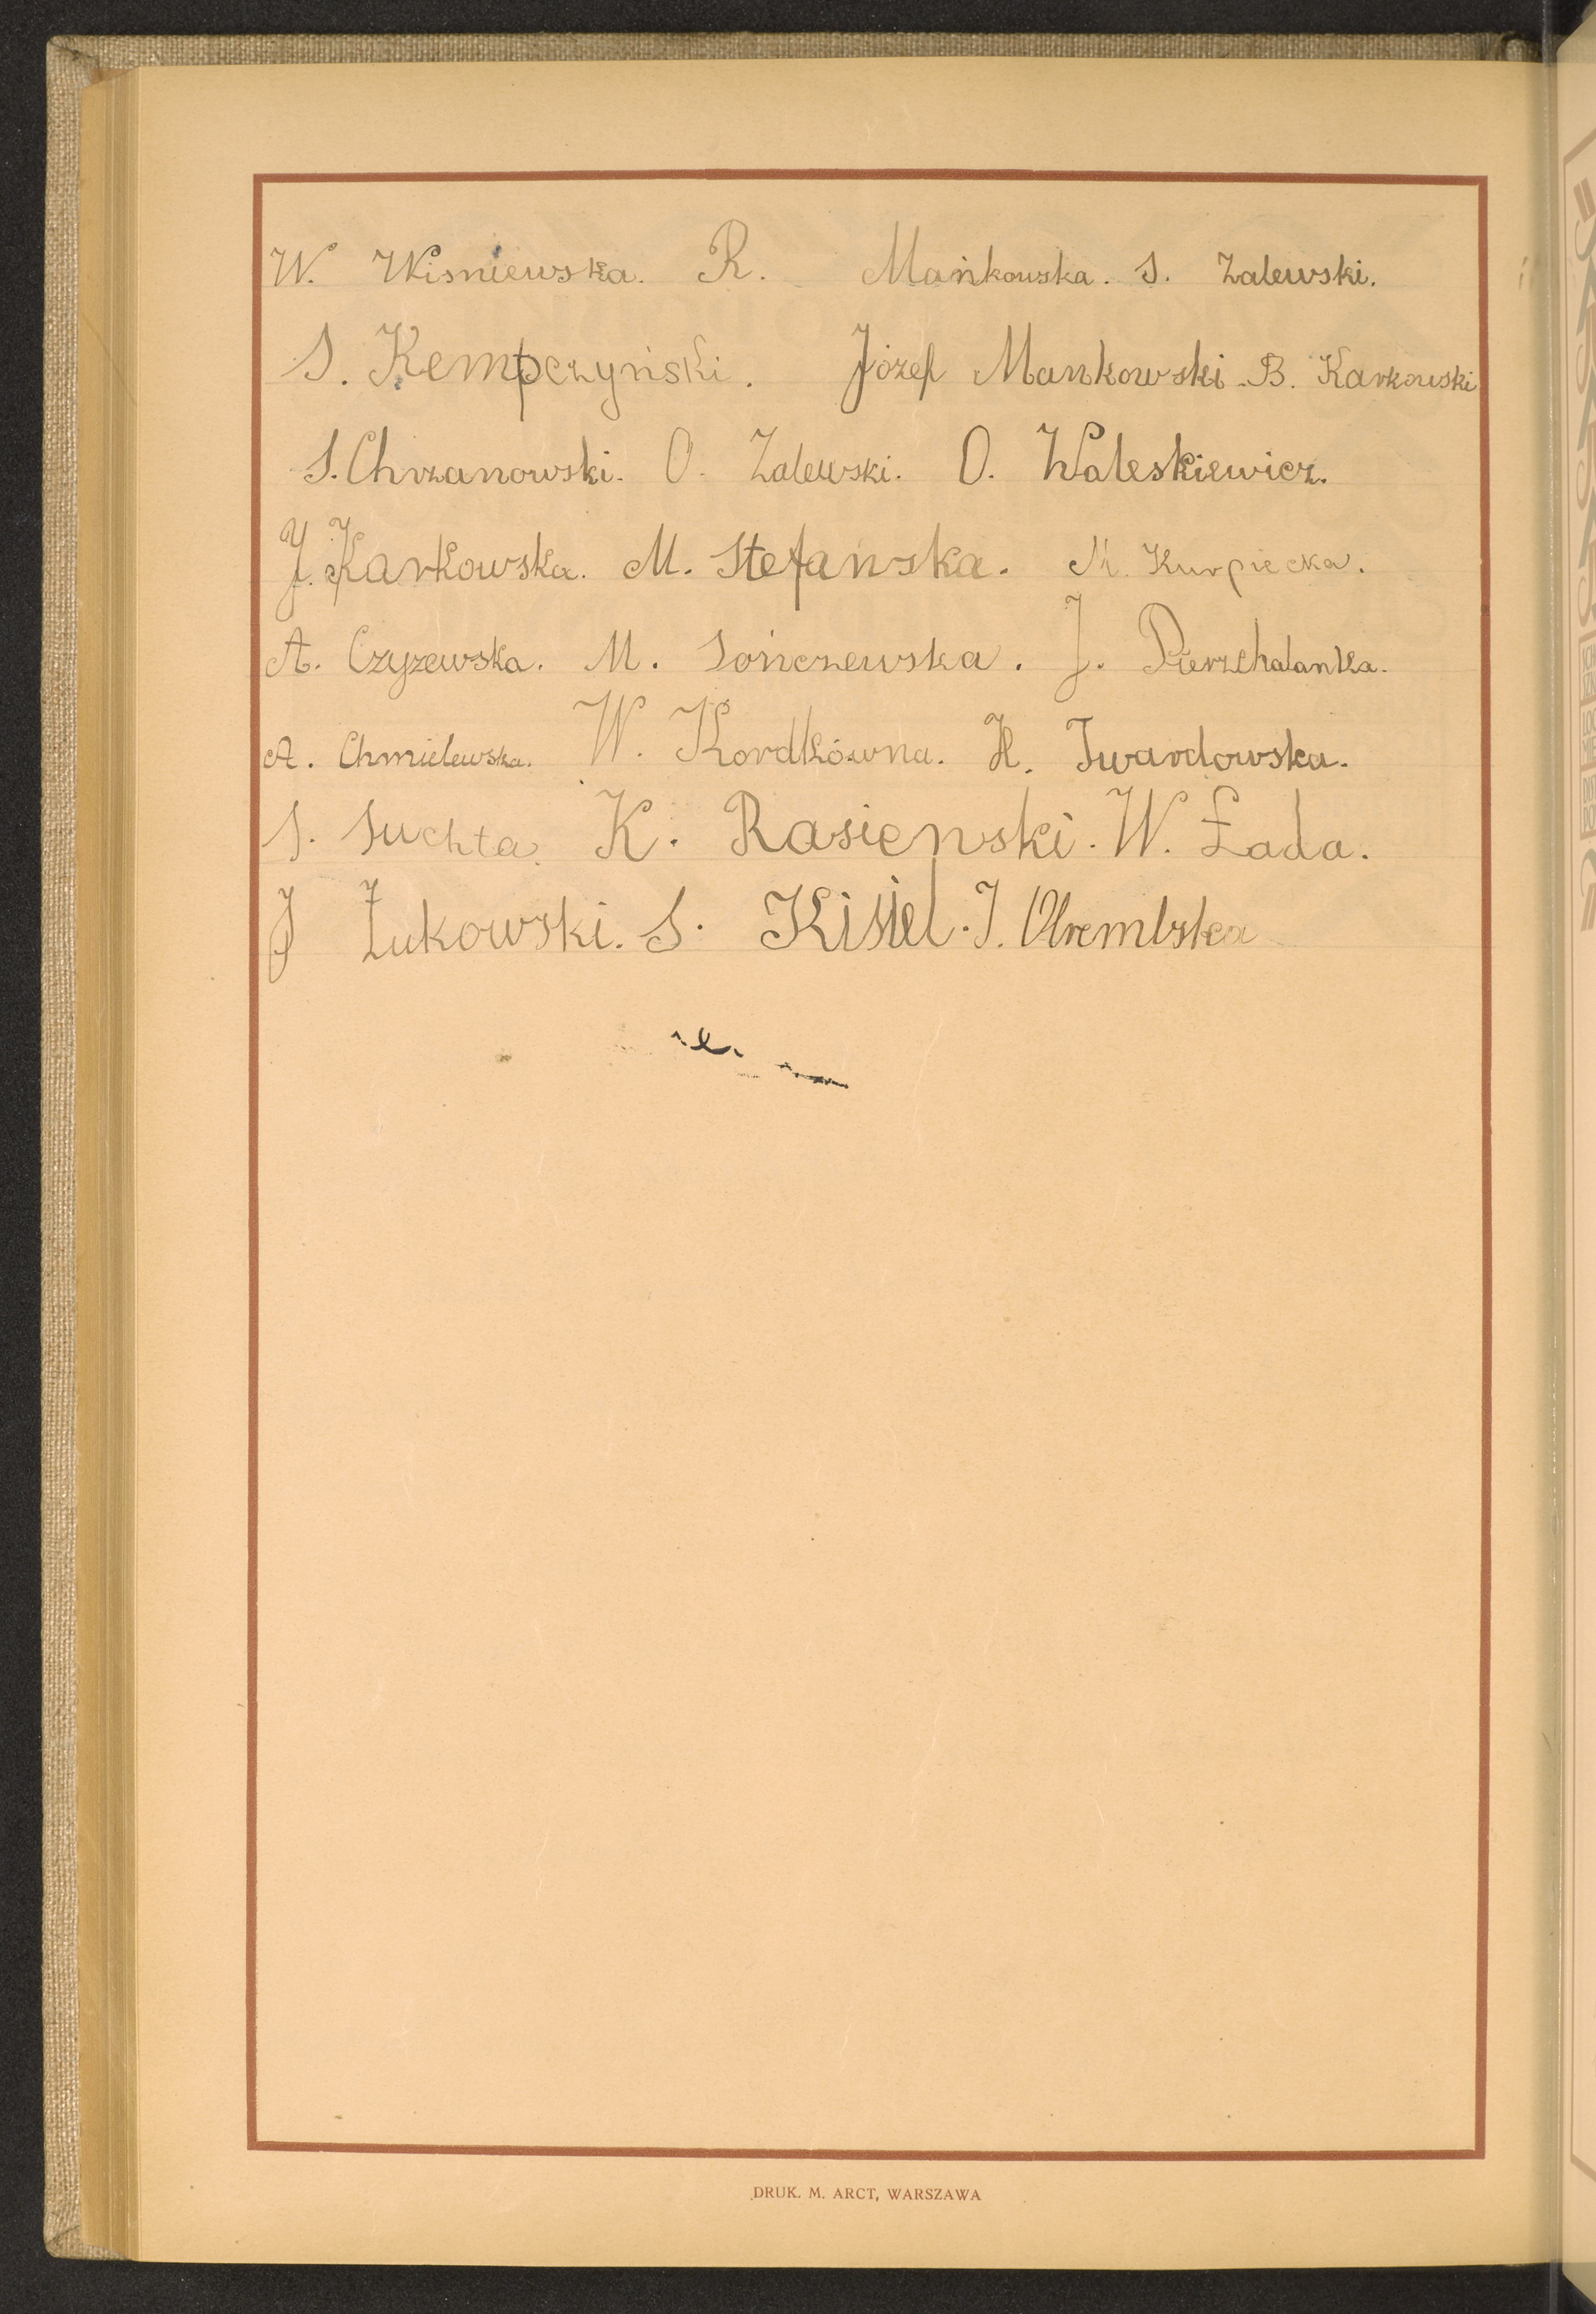 W. Wisniewska. R. Mańkowska. S. Zalewski.
S. Kempczyński. Józef Mankowski B. Karkowski
S. Chrzanowski. O. Zalewski. O. Waleskiewicz.
J. Karkowska. M. Stefańska. M. Kurpiecka.
A. Czyzewska. M. Sończewska. J. Pierzchalanka.
A. Chmielewska. W. Kordkówna. H. Twardowska.
S. Suchta. K. Rasienski. W. Łada.
J Żukowski. S. Kisiel. J. Obrembska
DRUK. M. ARCT, WARSZAWA